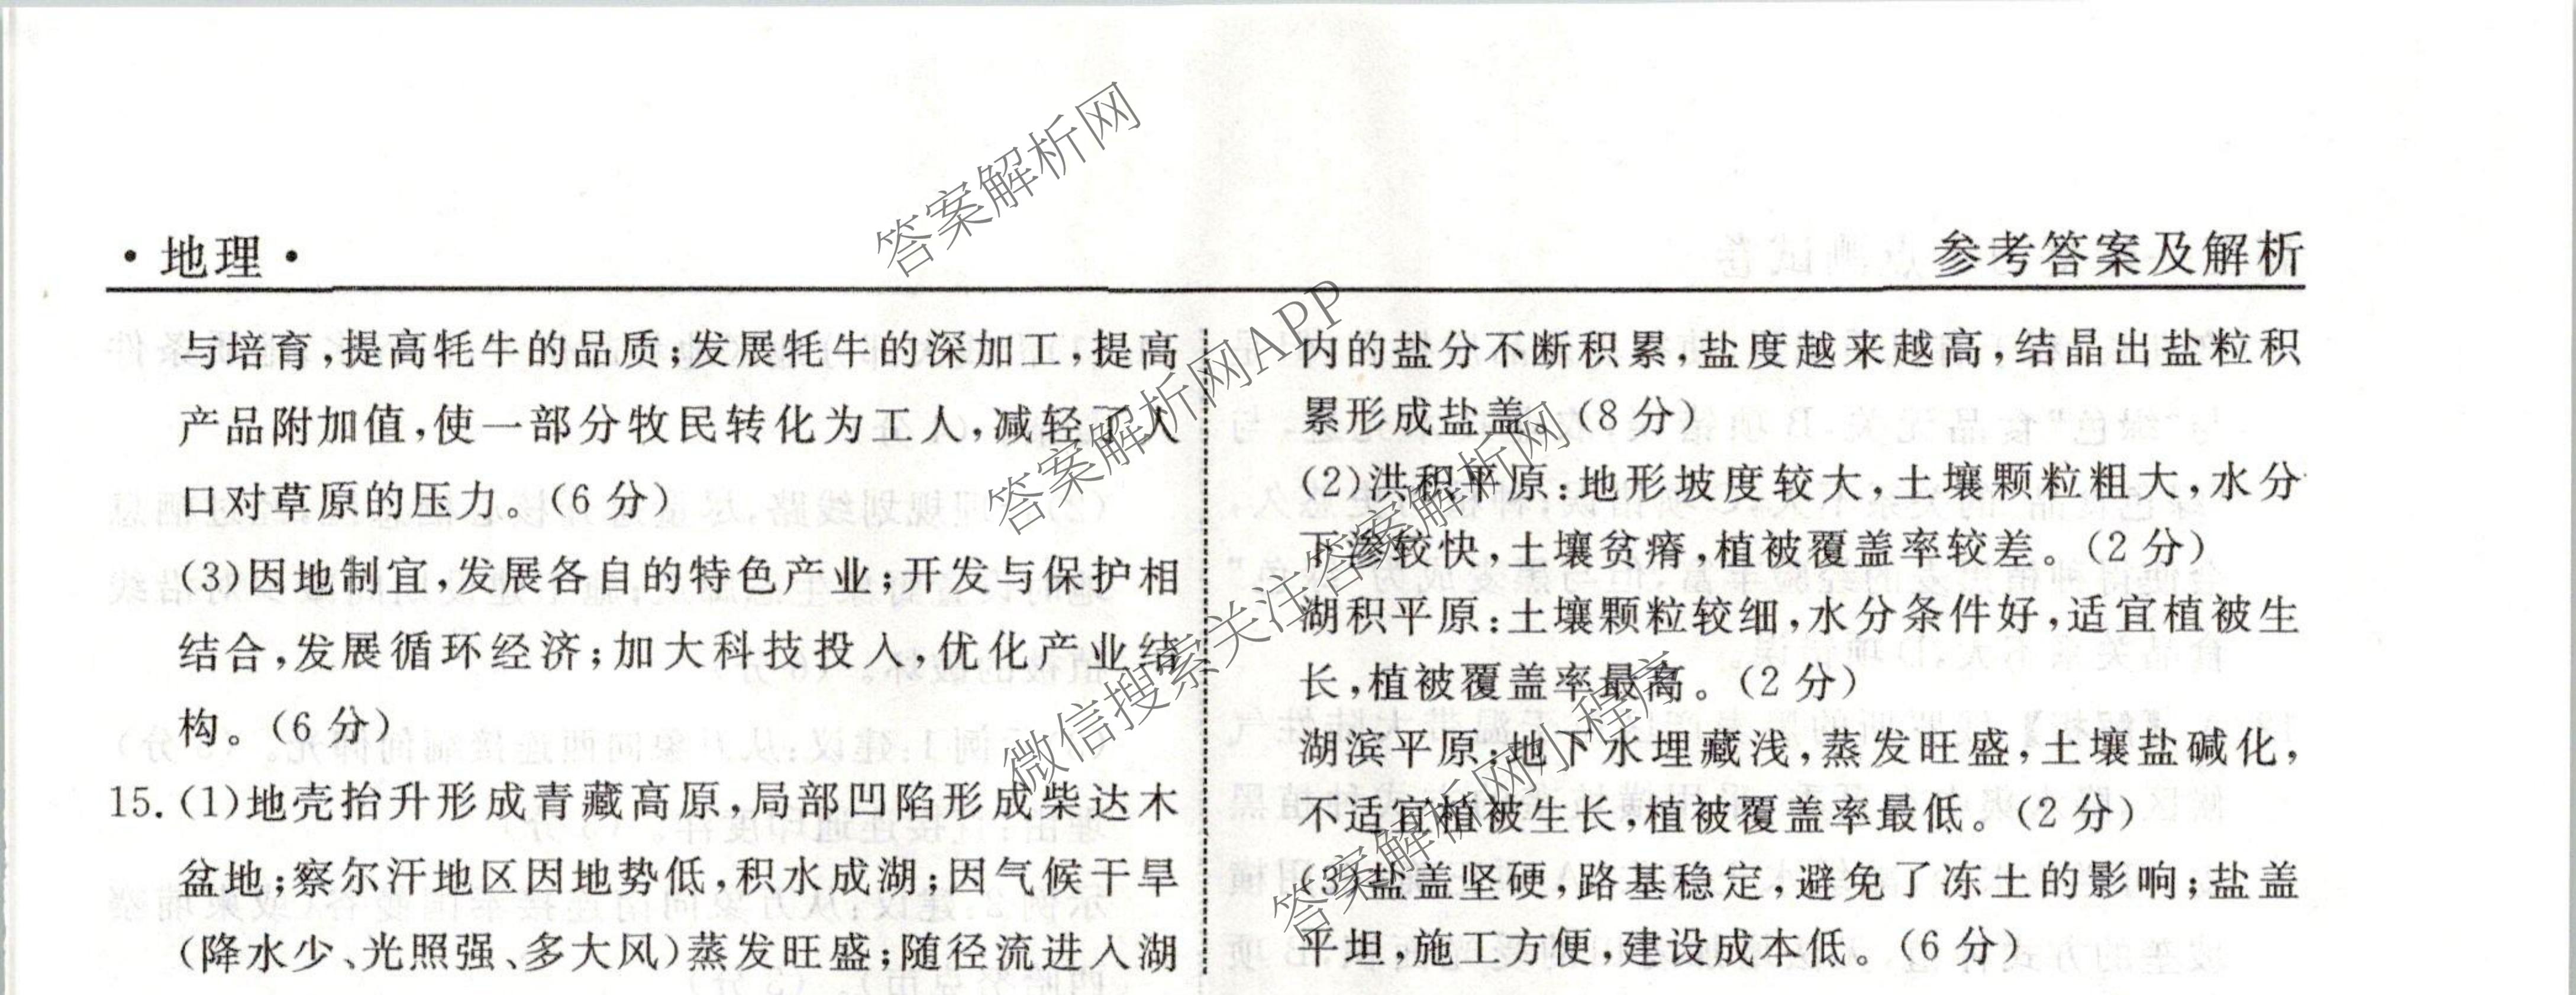 ·地理·
参考答案及解析
与培育,提高牦牛的品质;发展牦牛的深加工,提高
产品附加值,使一部分牧民转化为工人,减轻了人
口对草原的压力。(6分)
(3)因地制宜,发展各自的特色产业;开发与保护相
结合,发展循环经济;加大科技投入,优化产业结
构。(6分)
15.(1)地壳抬升形成青藏高原,局部凹陷形成柴达木
盆地;察尔汗地区因地势低,积水成湖;因气候干旱
(降水少、光照强、多大风)蒸发旺盛;随径流进入湖
内的盐分不断积累,盐度越来越高,结晶出盐粒积
累形成盐盖。(8分)
(2)洪积平原:地形坡度较大,土壤颗粒粗大,水分
下渗较快,土壤贫瘠,植被覆盖率较差。(2分)
湖积平原:土壤颗粒较细,水分条件好,适宜植被生
长,植被覆盖率最高。(2分)
湖滨平原:地下水埋藏浅,蒸发旺盛,土壤盐碱化,
不适宜植被生长,植被覆盖率最低。(2分)
(3)盐盖坚硬,路基稳定,避免了冻土的影响;盐盖
平坦,施工方便,建设成本低。(6分)
答案解析网
答案解析网APP
微信搜索关注答案解析网
答案解析网小程序